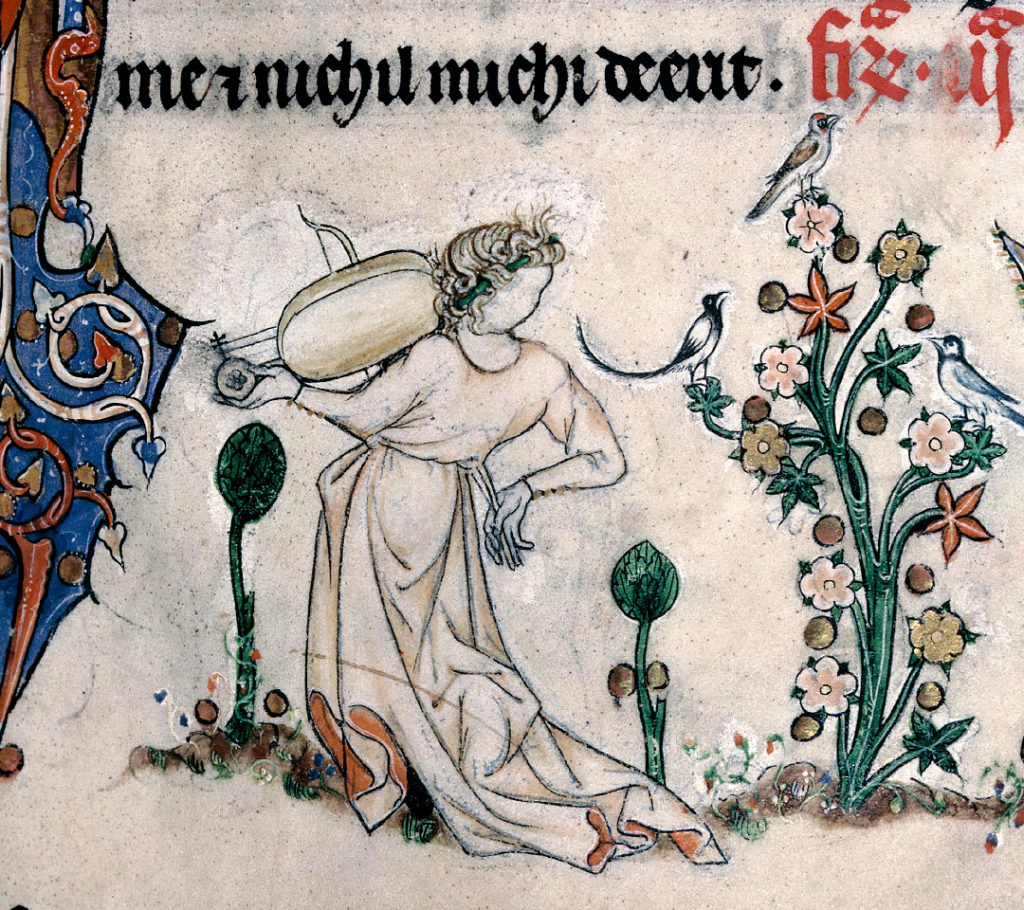 me ⁊ nichil michi deerit.